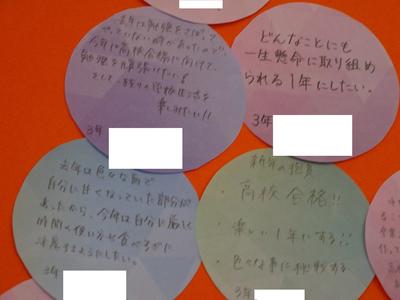 去年は勉強をさぼって
やっていない時があったので、
今年は高校合格に向けて
勉強を頑張りたい!
そして、残りの学校生活を
楽しみたい!!
3年
どんなことにも
一生懸命に取り組め
られる1年にしたい。
3年
去年は色々な面で
自分に甘くなっていた部分が
あったから、今年は自分に厳しく
時間の使い方や
したい。
3年
新年の抱負
・高校合格!!
・楽しい1年にする!!
・色々な事に挑戦する
3年